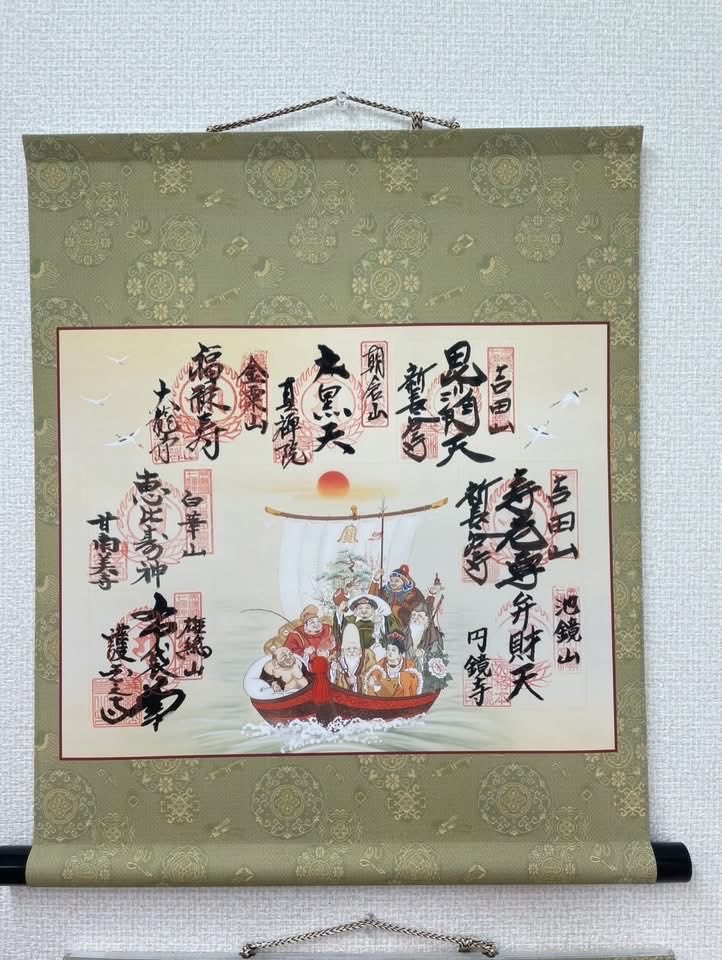 吉田山
毘沙門天
新長谷寺
朝倉山
大黒天
真禅院
金粟山
福禄寿
大龍寺
吉田山
寿老尊
新長谷寺
池鏡山
弁財天
円鏡寺
白華山
恵比寿神
甘南美寺
雄総山
布袋尊
護国之寺